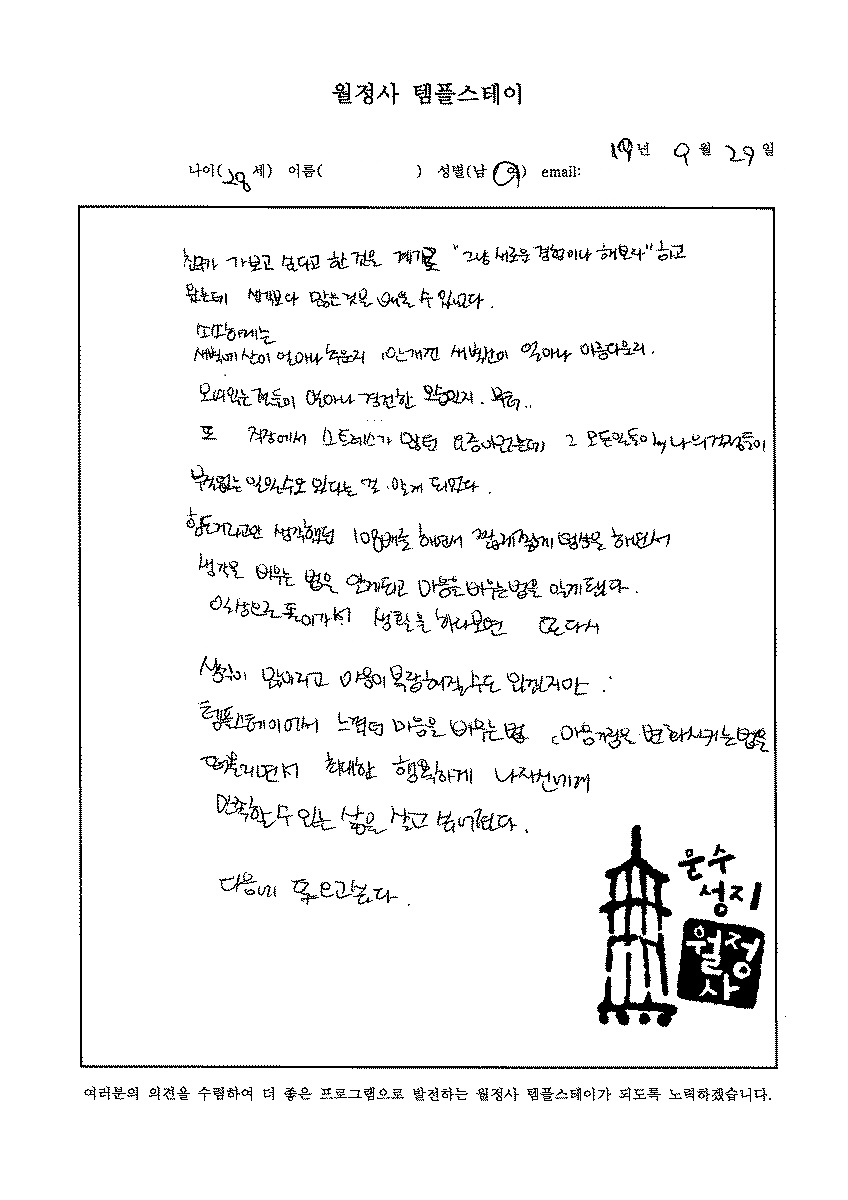 월정사 템플스테이
19년 9월 29일
나이(28세) 이름( ) 성별(남 여) email:
친구가 가보고 싶다고 한 것을 계기로 "그냥 새로운 경험이나 해보자" 하고
왔는데 생각보다 많은것을 배울 수 있었다.
새벽에 산이 얼마나 추운지, 안개낀 새벽산이 얼마나 아름다운지.
모여있는 것들이 얼마나 경건한 모습인지.
또 직장에서 스트레스가 많던 요즘이었는데 그 모든일들이 나의걱정들이
부질없는 일일수도 있다는 걸 알게 되었다.
힘들거라고만 생각했던 108배를 하면서 짧게짧게 명상을 하면서
생각을 비우는 법을 알게되고 마음을 비우는법을 알게됐다.
일상으로 돌아가서 생활을 하다보면 또 다시
생각이 많아지고 마음이 복잡해질수도 있겠지만
템플스테이에서 느꼈던 마음을 비우는법, 마음가짐을 변화시키는법을
떠올리면서 최대한 행복하게 나자신에게
만족할 수 있는 삶을 살고 싶어졌다.
다음에 또 오고싶다.
문수
성지
월정
사
여러분의 의견을 수렴하여 더 좋은 프로그램으로 발전하는 월정사 템플스테이가 되도록 노력하겠습니다.